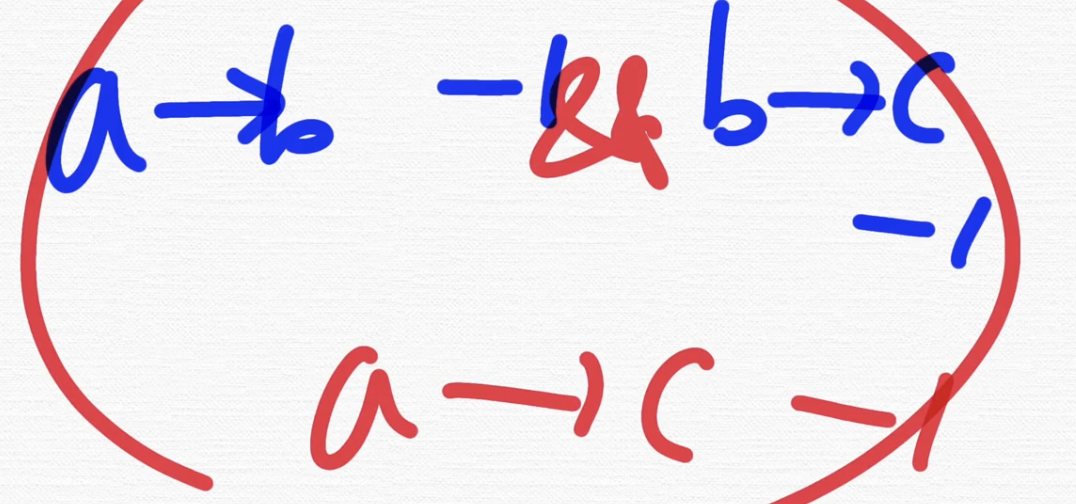 a → b -1 && b → c
-1
a → c -1